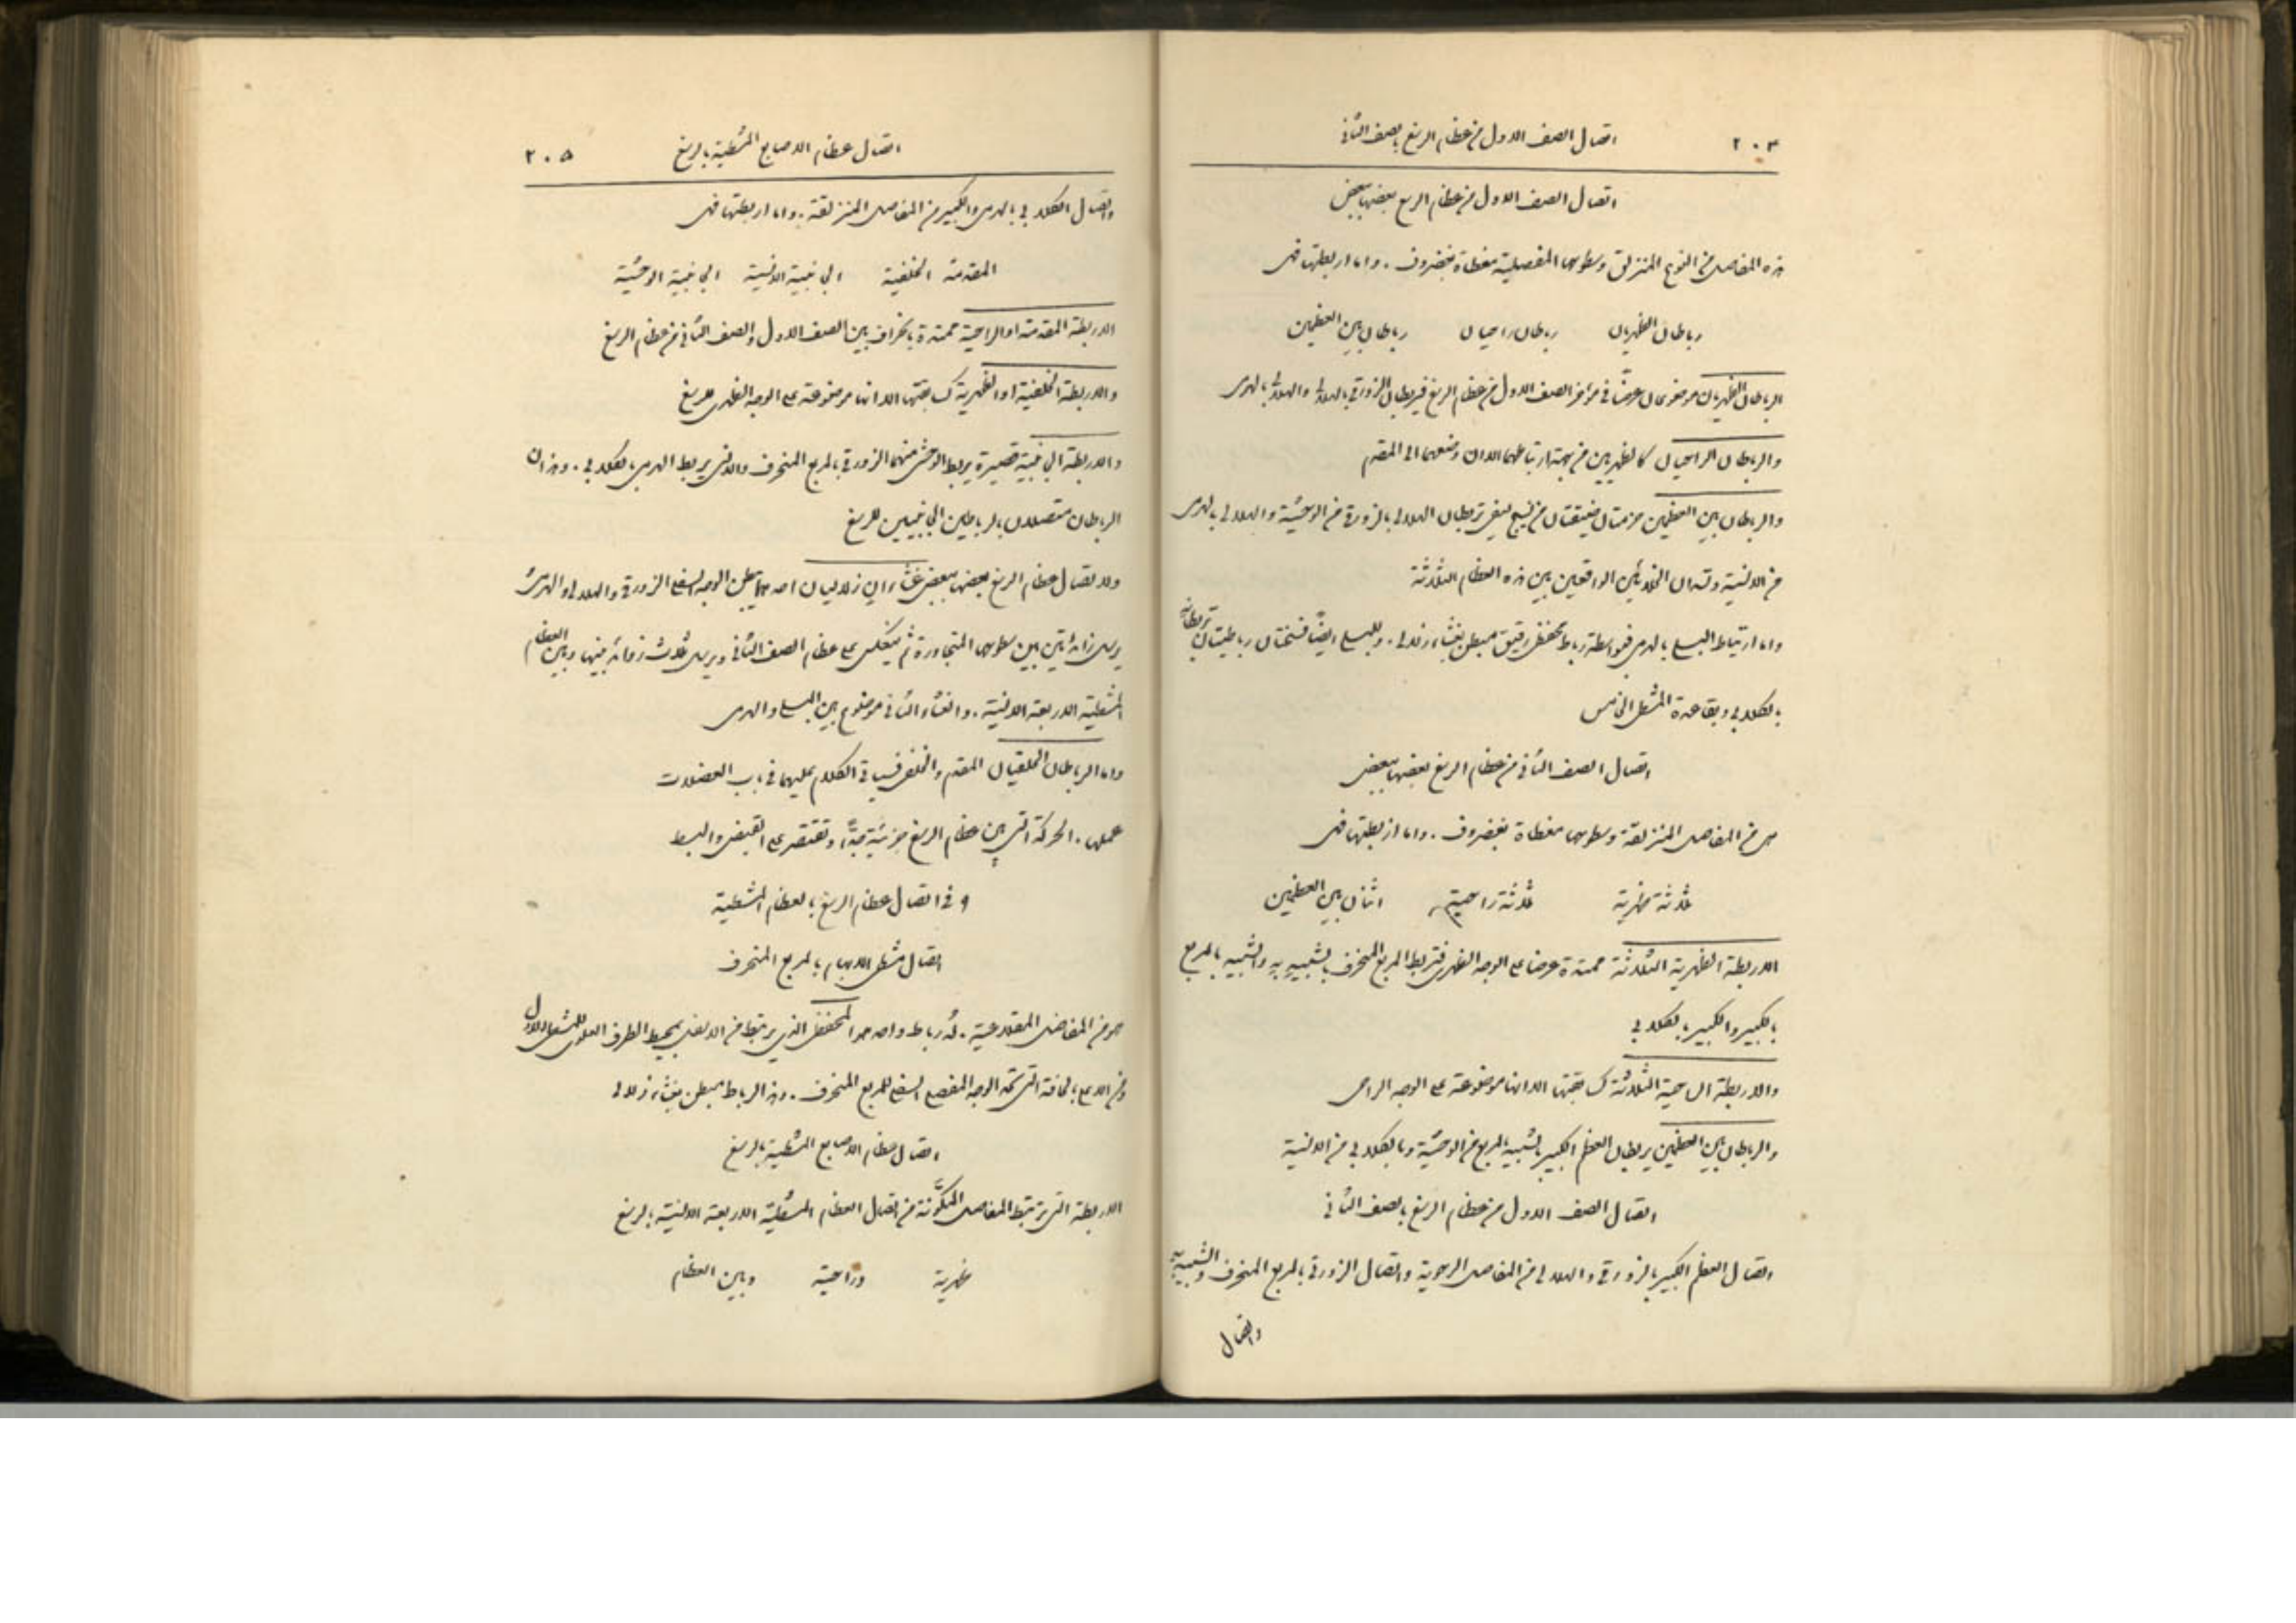 ٢٠٤
اتصال الصف الاول من عظام الرسغ بالصف الثاني
اتصال الصف الاول من عظام الرسغ بعضها ببعض
هذه المفاصل من النوع المنزلق وسطوحها المفصلية مغطاة بغضروف . واما اربطتها فهي
رباطان ظهريان رباطان راحيان رباطان بين العظمين
الرباطان الظهريان موضوعان عرضًا في مؤخر الصف الاول من عظام الرسغ فيربطان الزورقي بالهلالي والهلالي بالهرمي
والرباطان الراحيان كالظهريين من جهة ارتباطهما الا ان وضعهما الى المقدم
والرباطان بين العظمين حزمتان ضيقتان من نسيج ليفي تربطان الهلالي بالزورقي من الوحشية والهلالي بالهرمي
من الانسية وتسدان الخلائين الواقعين بين هذه العظام الثلاثة
واما ارتباط البسلي بالهرمي فبواسطة رباط محفظي رقيق مبطن بغشاء زلالي . وللبسلي ايضًا فسختان رباطيتان تربطانه
بالكلابي وبقاعدة المشطي الخامس
اتصال الصف الثاني من عظام الرسغ بعضها ببعض
هي من المفاصل المنزلقة وسطوحها مغطاة بغضروف . واما اربطتها فهي
ثلاثة ظهرية ثلاثة راحية اثنان بين العظمين
الاربطة الظهرية الثلاثة ممتدة عرضا على الوجه الظهري فتربط المربع المنحرف بالشبيه به والشبيه بالمربع
بالكبير والكبير بالكلابي
والاربطة الراحية الثلاثة كسابقتها الا انها موضوعة على الوجه الراحي
والرباطان بين العظمين يربطان العظم الكبير بالشبيه بالمربع من الوحشية وبالكلابي من الانسية
اتصال الصف الاول من عظام الرسغ بالصف الثاني
اتصال العظم الكبير بالزورقي والهلالي من المفاصل الرحوية واتصال الزورقي بالمربع المنحرف والشبيه به
واتصال
اتصال عظام الاصابع المشطية بالرسغ
٢٠٥
واتصال الكلابي بالهرمي والكبير من المفاصل المنزلقة . واما اربطتها فهي
المقدمة الخلفية الجانبية الانسية الجانبية الوحشية
الاربطة المقدمة او الراحية ممتدة بانحراف بين الصف الاول والصف الثاني من عظام الرسغ
والاربطة الخلفية او الظهرية كسابقتها الا انها موضوعة على الوجه الظهري للرسغ
والاربطة الجانبية قصيرة يربط الوحشي منهما الزورقي بالمربع المنحرف والانسي يربط الهرمي بالكلابي . وهذان
الرباطان متصلان بالرباطين الجانبيين للرسغ
ولاتصال عظام الرسغ بعضها ببعض غشاءان زلاليان احدهما يبطن الوجه السفلي الزورقي والهلالي والهرمي
يرسل زائدتين بين سطوحها المتجاورة ثم ينعكس على عظام الصف الثاني ويرسل ثلاث زوائد بينها وبين العظام
المشطية الاربعة الانسية . والغشاء الثاني موضوع بين البسلي والهرمي
واما الرباطان الحلقيان المقدم والخلفي فسياتي الكلام عليهما في باب العضلات
عملها . الحركة التي بين عظام الرسغ جزئية جدًّا وتقتصر على القبض والبسط
و في اتصال عظام الرسغ بالعظام المشطية
اتصال مشطي الابهام بالمربع المنحرف
هو من المفاصل المقلاعية . له رباط واحد هو المحفظي الذي يرتبط من الاسفل بمحيط الطرف العلوي للمشطي الاول
ومن الاعلى بالحافة التي تحد الوجه المفصلي السفلي للمربع المنحرف . وهذا الرباط مبطن بغشاء زلالي
اتصال عظام الاصابع المشطية بالرسغ
الاربطة التي ترتبط المفاصل المتكوّنة من اتصال العظام المشطية الاربعة الانسية بالرسغ
ظهرية وراحية وبين العظام